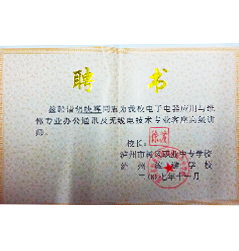 聘 书
兹聘请胡晓辉同志为我校电子电器应用与维
修专业办公通讯及无线电技术专业客座高级讲
师。
校长:
泸州市 职业中专学校
泸州 学校
二〇〇七年十一月